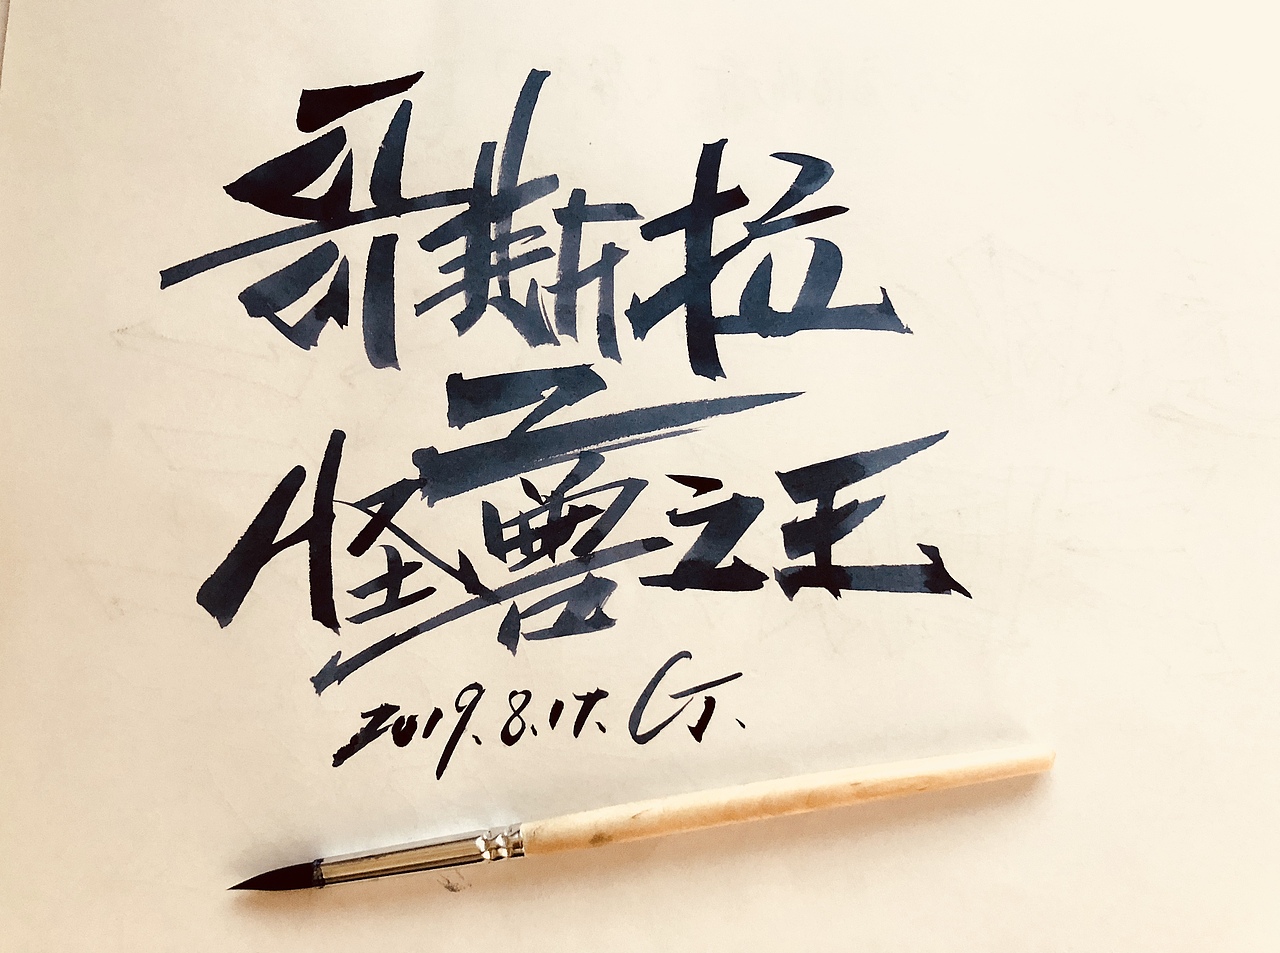 哥斯拉
2
怪兽之王
2019.8.17.